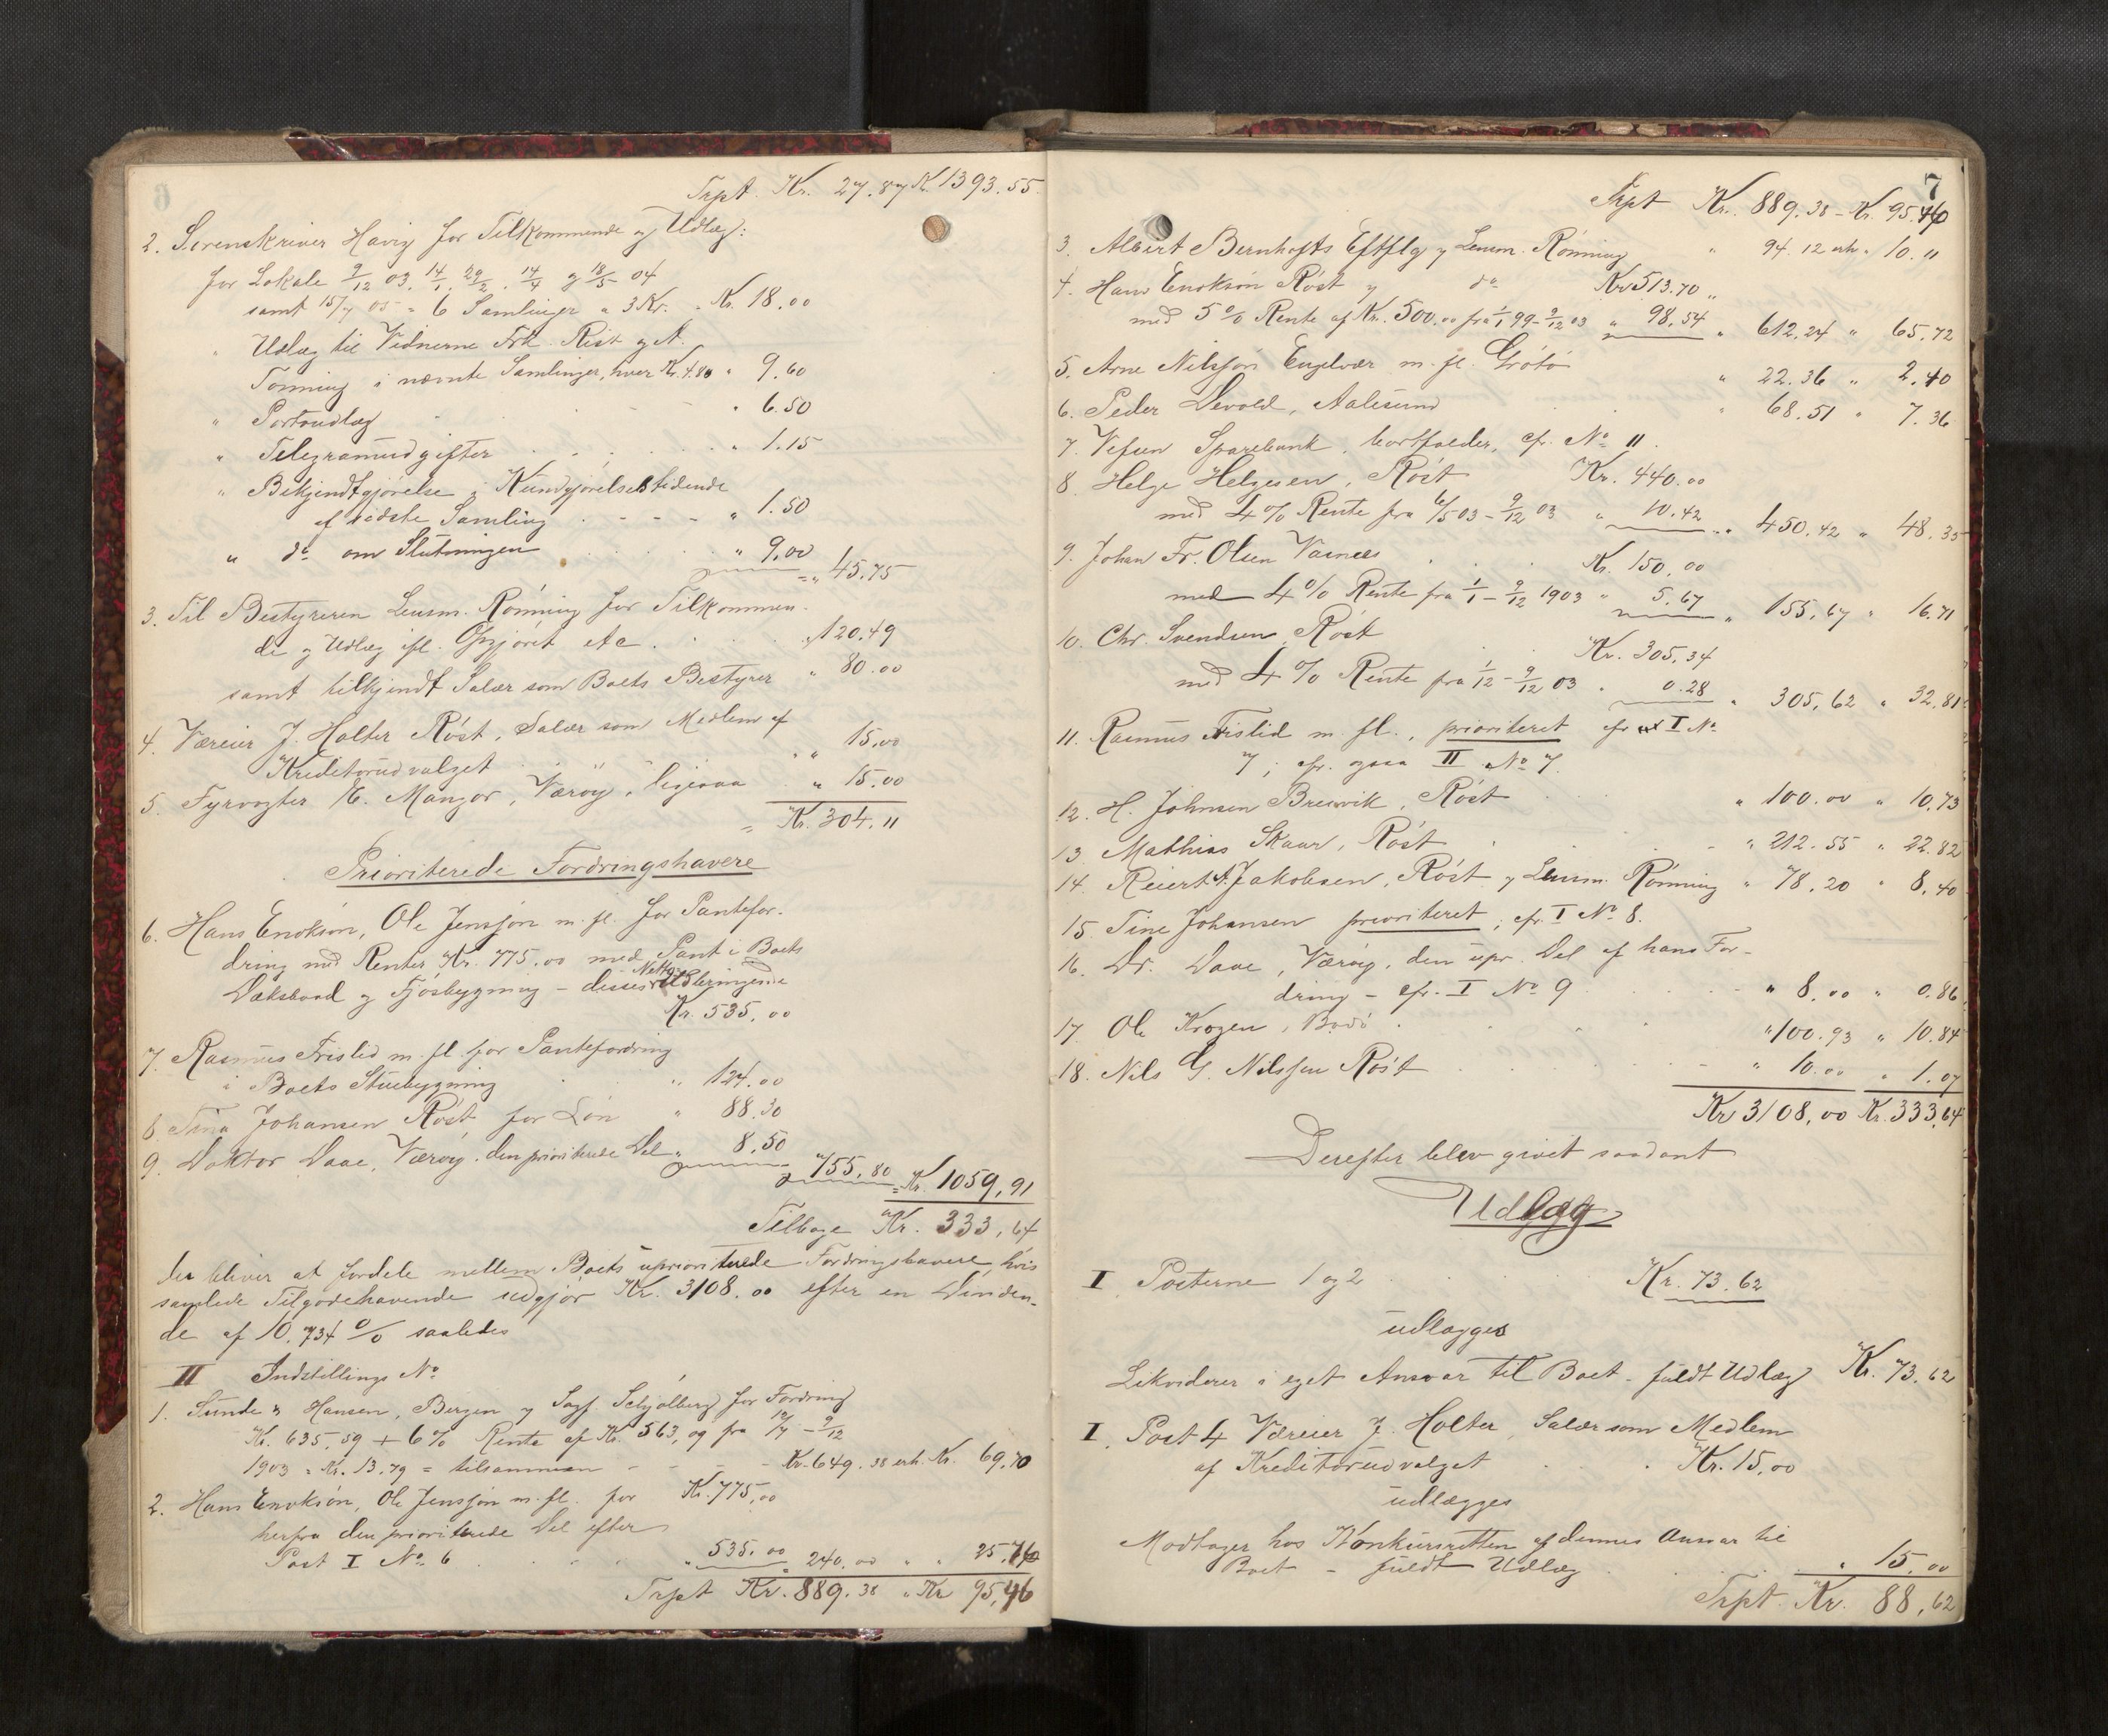 Trpt. Kr. 27.87 Kr. 1393.55
2. Sorenskriver Havig for Tilkommende og Udlæg:
for Lokale 9/12 03. 14/1. 29/2. 14/4 og 18/5 04
samt 15/7 05 = 6 Samlinger a 3 Kr. - Kr. 18.00
" Udlæg til Vidnerne Frk. Rist og A.
Tønning i nævnte Samlinger, hver Kr. 4.80 " 9.60
" Portoudlæg - " 6.50
" Telegramudgifter " 1.15
" Bekjendtgjørelse i Kundgjørelsestidende
af sidste Samling - - - " 1.50
" do om Slutningen " 9.00 = " 45.75
3. Til Bestyreren Lensm. Rønning for Tilkommen-
de og Udlæg ifl. Opgjøret etc. " 120.49
samt tilkjendt Salær som Boets Bestyrer " 80.00
4. Væreier J. Holter Røst, Salær som Medlem af
Kreditorudvalget " 15.00
5. Fyrvogter E. Mangor, Værøy, ligesaa " 15.00
= Kr. 304.11
Prioriterede Fordringshavere
6. Hans Enokson, Ole Jensson m. fl. for Pantefor-
dring med Renter Kr. 775.00 med Pant i Boets
Dæksbaad og Fjøsbygning - disses Netto Udbringende
Kr. 535.00
7. Rasmus Frislid m. fl. for Pantefordring
i Boets Stuebygning " 124.00
8. Tina Johansen Røst, for Løn " 88.30
9. Doktor Daae, Værøy, den prioriterede Del " 8.50
" 755.80 = Kr. 1059,91
Tilbage Kr. 333,64
der bliver at fordele mellem Boets uprioriterede Fordringshavere, hvis
samlede Tilgodehavende udgjør Kr. 3108.00 efter en Dividen-
de af 10.734 % saaledes
II Indstillings No
1. Sunde & Hansen, Bergen v. Sagf. Schjølberg for Fordring
Kr. 635,59 + 6% Rente af Kr. 563, og fra 12/7 - 9/12
1903 = Kr. 13.79 = tilsammen - - - Kr. 649.38 erh. Kr. 69,70
2. Hans Enokson, Ole Jensson m. fl. for Kr. 775,00
herfra den prioriterede Del efter
Post I No 6 " 535.00 240.00 " " 25.76
Trpt Kr. 889.38 " Kr 95,46
7
Trpt Kr. 889.38 - Kr. 95.46
3. Albert Bernhofts Eftflg v Lensm. Rønning " 94.12 erh " 10.11
4. Hans Enokson Røst v do Kr 513.70
med 5% Rente af Kr. 500.00 fra 1/1 99 - 9/12 03 " 98,54 " 612,24 " 65,72
5. Arne Nilsson Engelvær m. fl. Grøtø " 22.36 " 2.40
6. Peder Devold, Aalesund " 68.51 " 7.36
7. Vefsen Sparebank, bortfalder, cfr. No 11.
8. Helge Helgesen, Røst Kr. 440.00
med 4% Rente fra 6/5 03 - 9/12 03 " 10.42 " 450.42 " 48.35
9. Johan Fr. Olsen Værnæs Kr. 150.00
med 4% Rente fra 1/1 - 9/12 1903 " 5.67 " 155,67 " 16.71
10. Chr. Svendsen, Røst Kr. 305,34
med 4% Rente fra 1/12 - 9/12 03 " 0.28 " 305,62 " 32,81
11. Rasmus Frislid m. fl., prioriteret cfr I No
7, cfr. ogsaa II No 7.
12. H. Johnsen Breivik, Røst " 100.00 " 10,73
13. Mathias Skaar, Røst " 212.55 " 22.82
14. Reiert A. Jakobsen, Røst v Lensm. Rønning " 78.20 " 8,40
15. Tine Johansen prioriteret, cfr. I No 8.
16. Dr. Daae, Værøy, den upr. Del af hans For-
dring - cfr. I No 9 " 8.00 " 0.86
17 Ole Krogen, Bodø " 100.93 " 10.84
18. Nils G. Nilssen Røst " 10.00 " 1.07
Kr 3108,00 Kr. 333,64
Derefter blev givet saadant
Udlæg
I Posterne 1 og 2 Kr. 73.62
udlægges
Likviderer i eget Ansvar til Boet - fuldt Udlæg Kr. 73.62
I. Post 4 Væreier J. Holter, Salær som Medlem
af Kreditorudvalget Kr. 15,00
udlægges
Modtager hos Konkursretten af dennes Ansvar til
Boet - fuldt Udlæg " 15,00
Trpt. Kr. 88,62